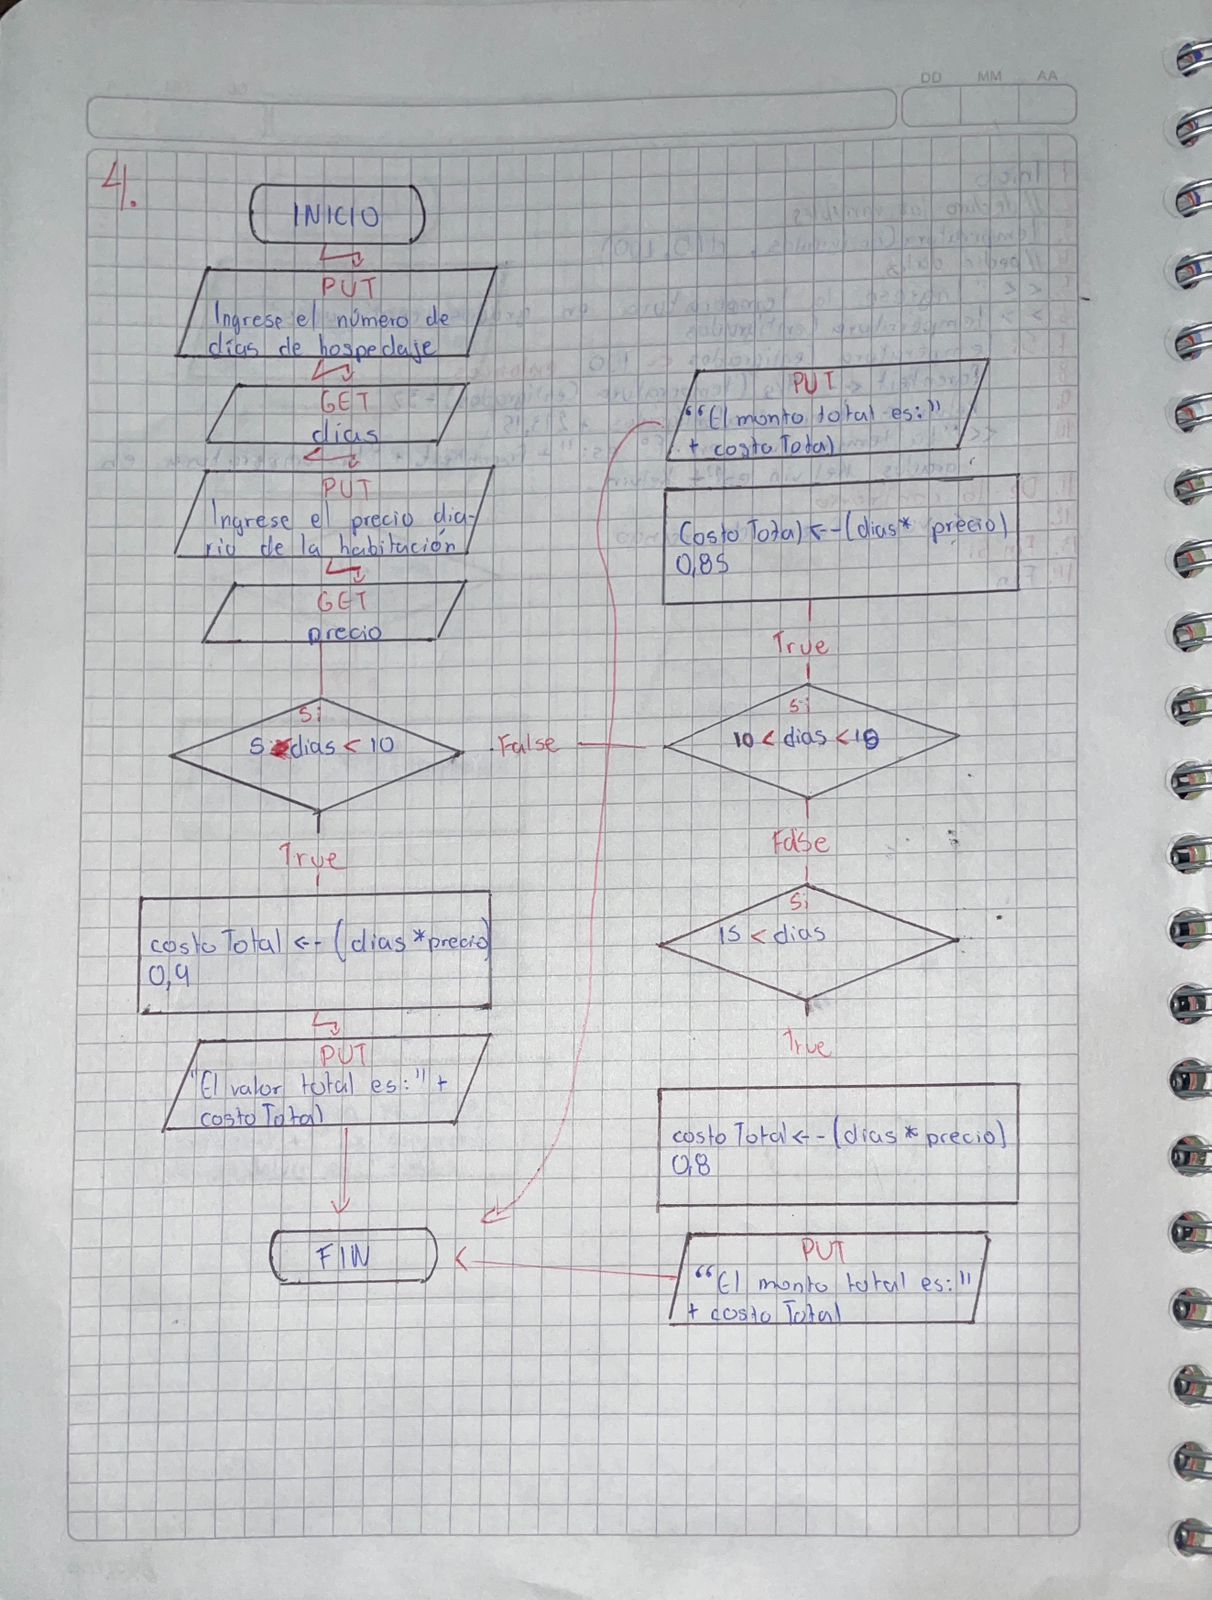 DD MM AA
4.
INICIO
PUT
Ingrese el número de
días de hospedaje
GET
días
PUT
Ingrese el precio dia-
rio de la habitación
GET
precio
Si
5 < dias < 10
False
True
costo Total <-- (dias * precio)
0,9
PUT
"El valor total es:" +
costo Total
FIN
PUT
"El monto total es:"
+ costo Total
Costo Total <-- (dias * precio)
0,85
True
Si
10 < dias < 15
False
Si
15 < dias
True
costo Total <-- (dias * precio)
0,8
PUT
"El monto total es:"
+ costo Total